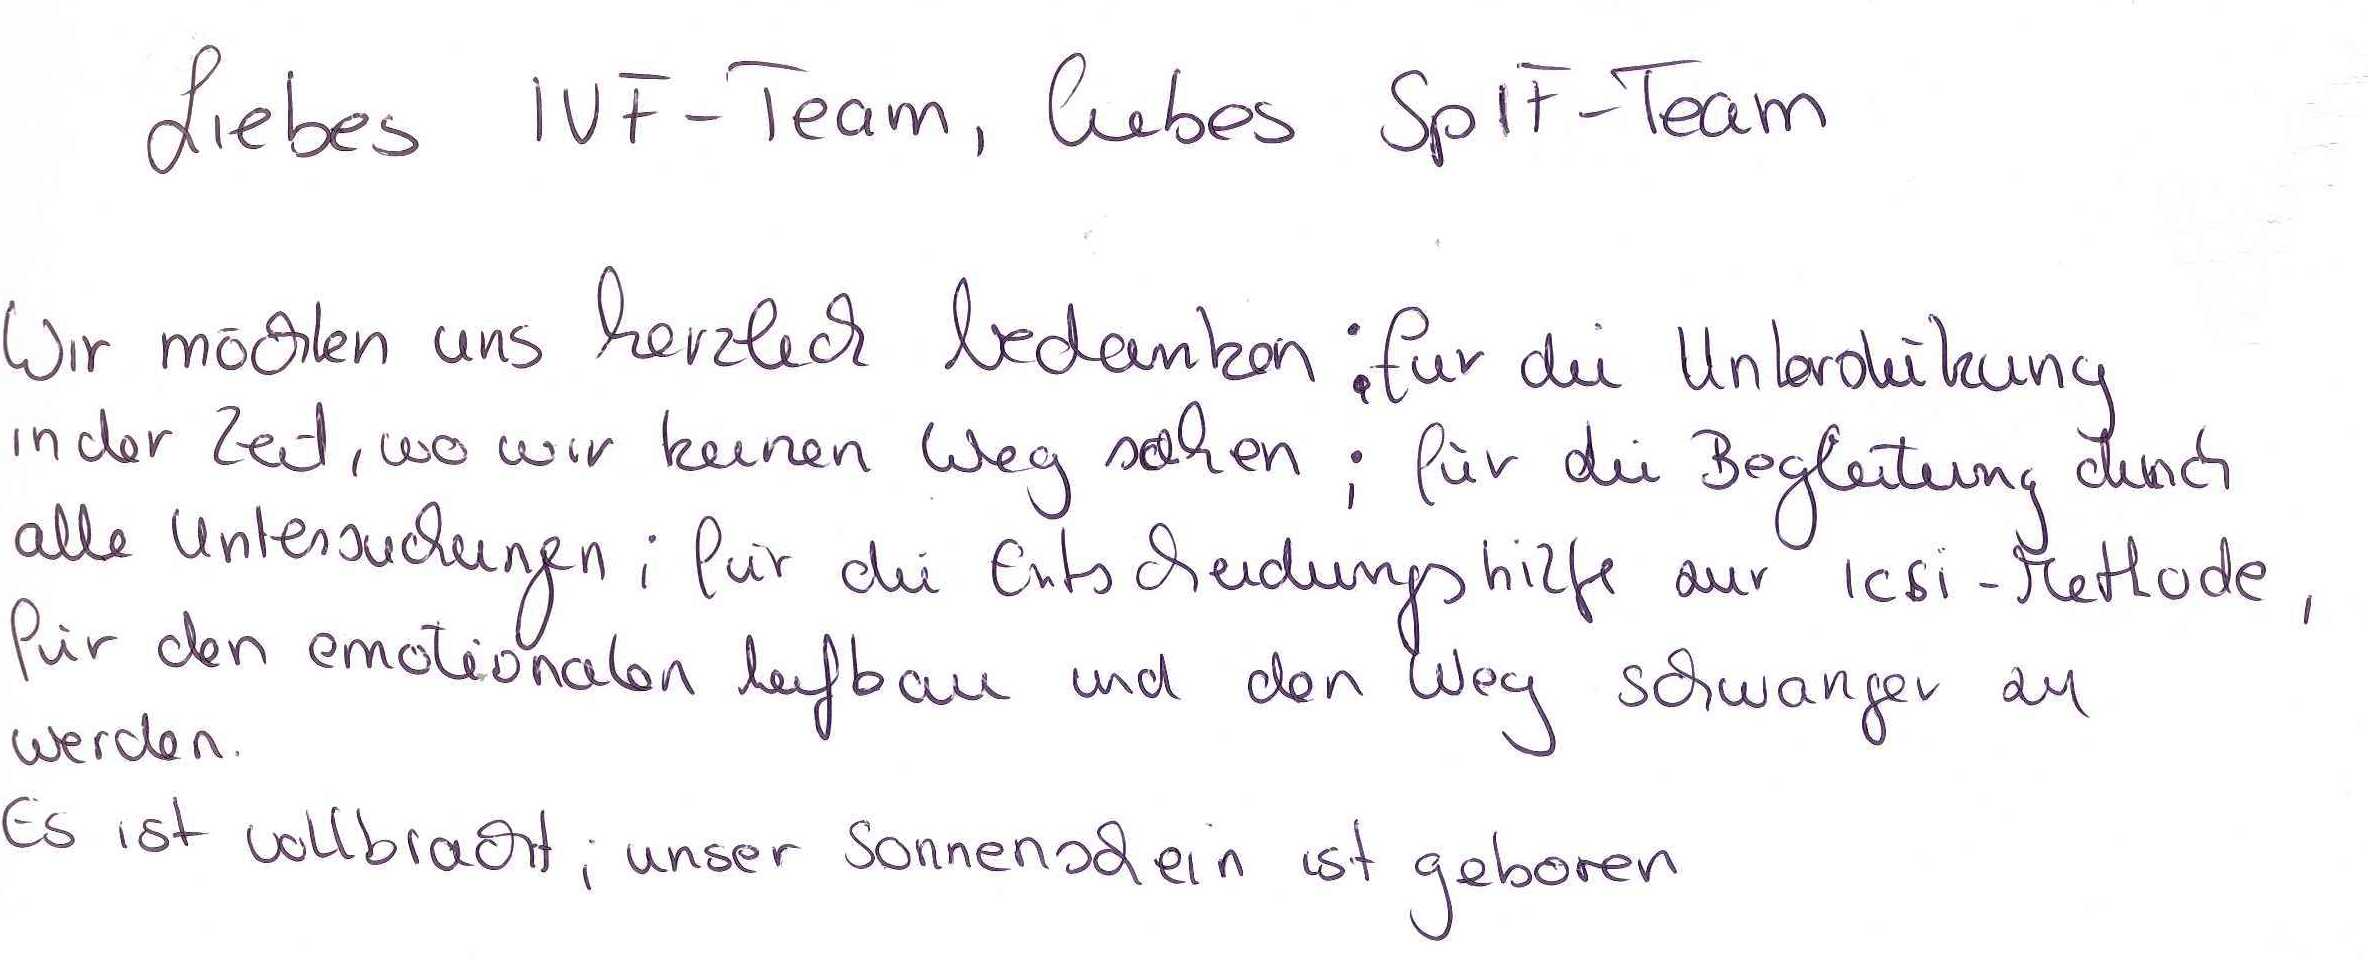 Liebes IVF-Team, liebes SpIF-Team
Wir möchten uns herzlich bedanken : für die
in der Zeit, wo wir keinen Weg sahen ; für die Begleitung durch
alle Untersuchungen ; für die Entscheidungshilfe zur icsi-Methode,
für den emotionalen Aufbau und den Weg schwanger zu
werden.
Es ist vollbracht ; unser Sonnenschein ist geboren